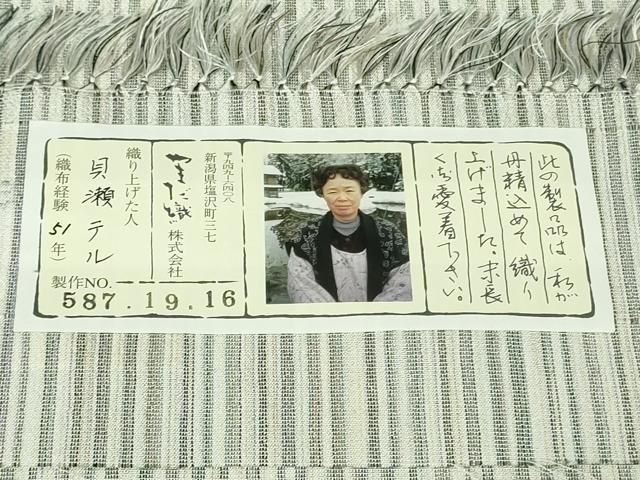 此の製品は、私が
丹精込めて織り
上げました。末長
く御愛着下さい。
〒九四九-六四〇八
新潟県塩沢町三七
株式会社
織り上げた人
貝瀬テル
(織布経験51年)
製作NO.
587.19.16